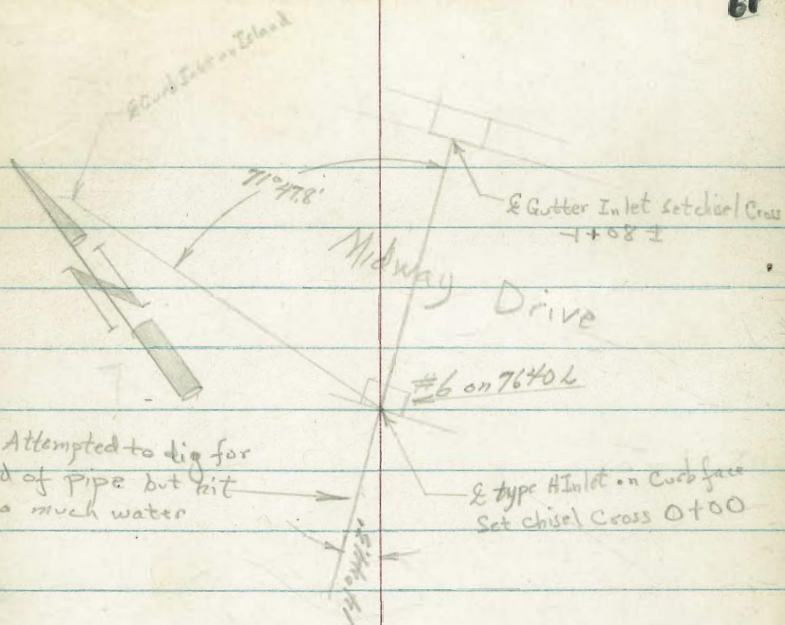 61
℄ Curb Inlet on Island
71°47.8'
℄ Gutter Inlet Set chisel Cross
-1+08 ±
Midway Drive
#6 on 7640 L
Attempted to dig for
d of pipe but hit
o much water
℄ type H Inlet on Curb face
Set chisel Cross 0+00